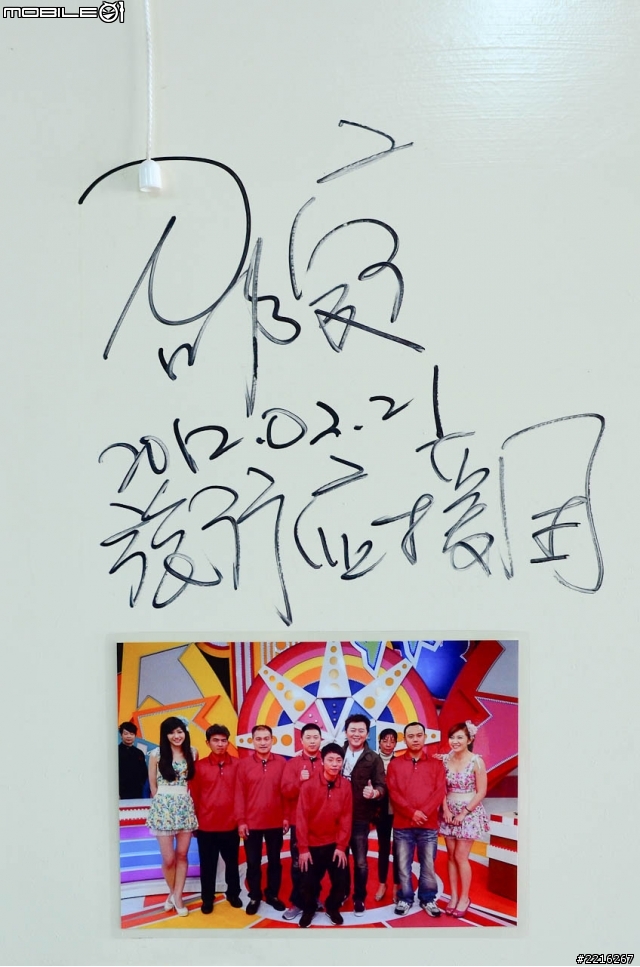 MOBILE01
2012.02.21
旅行应援团
#2216267